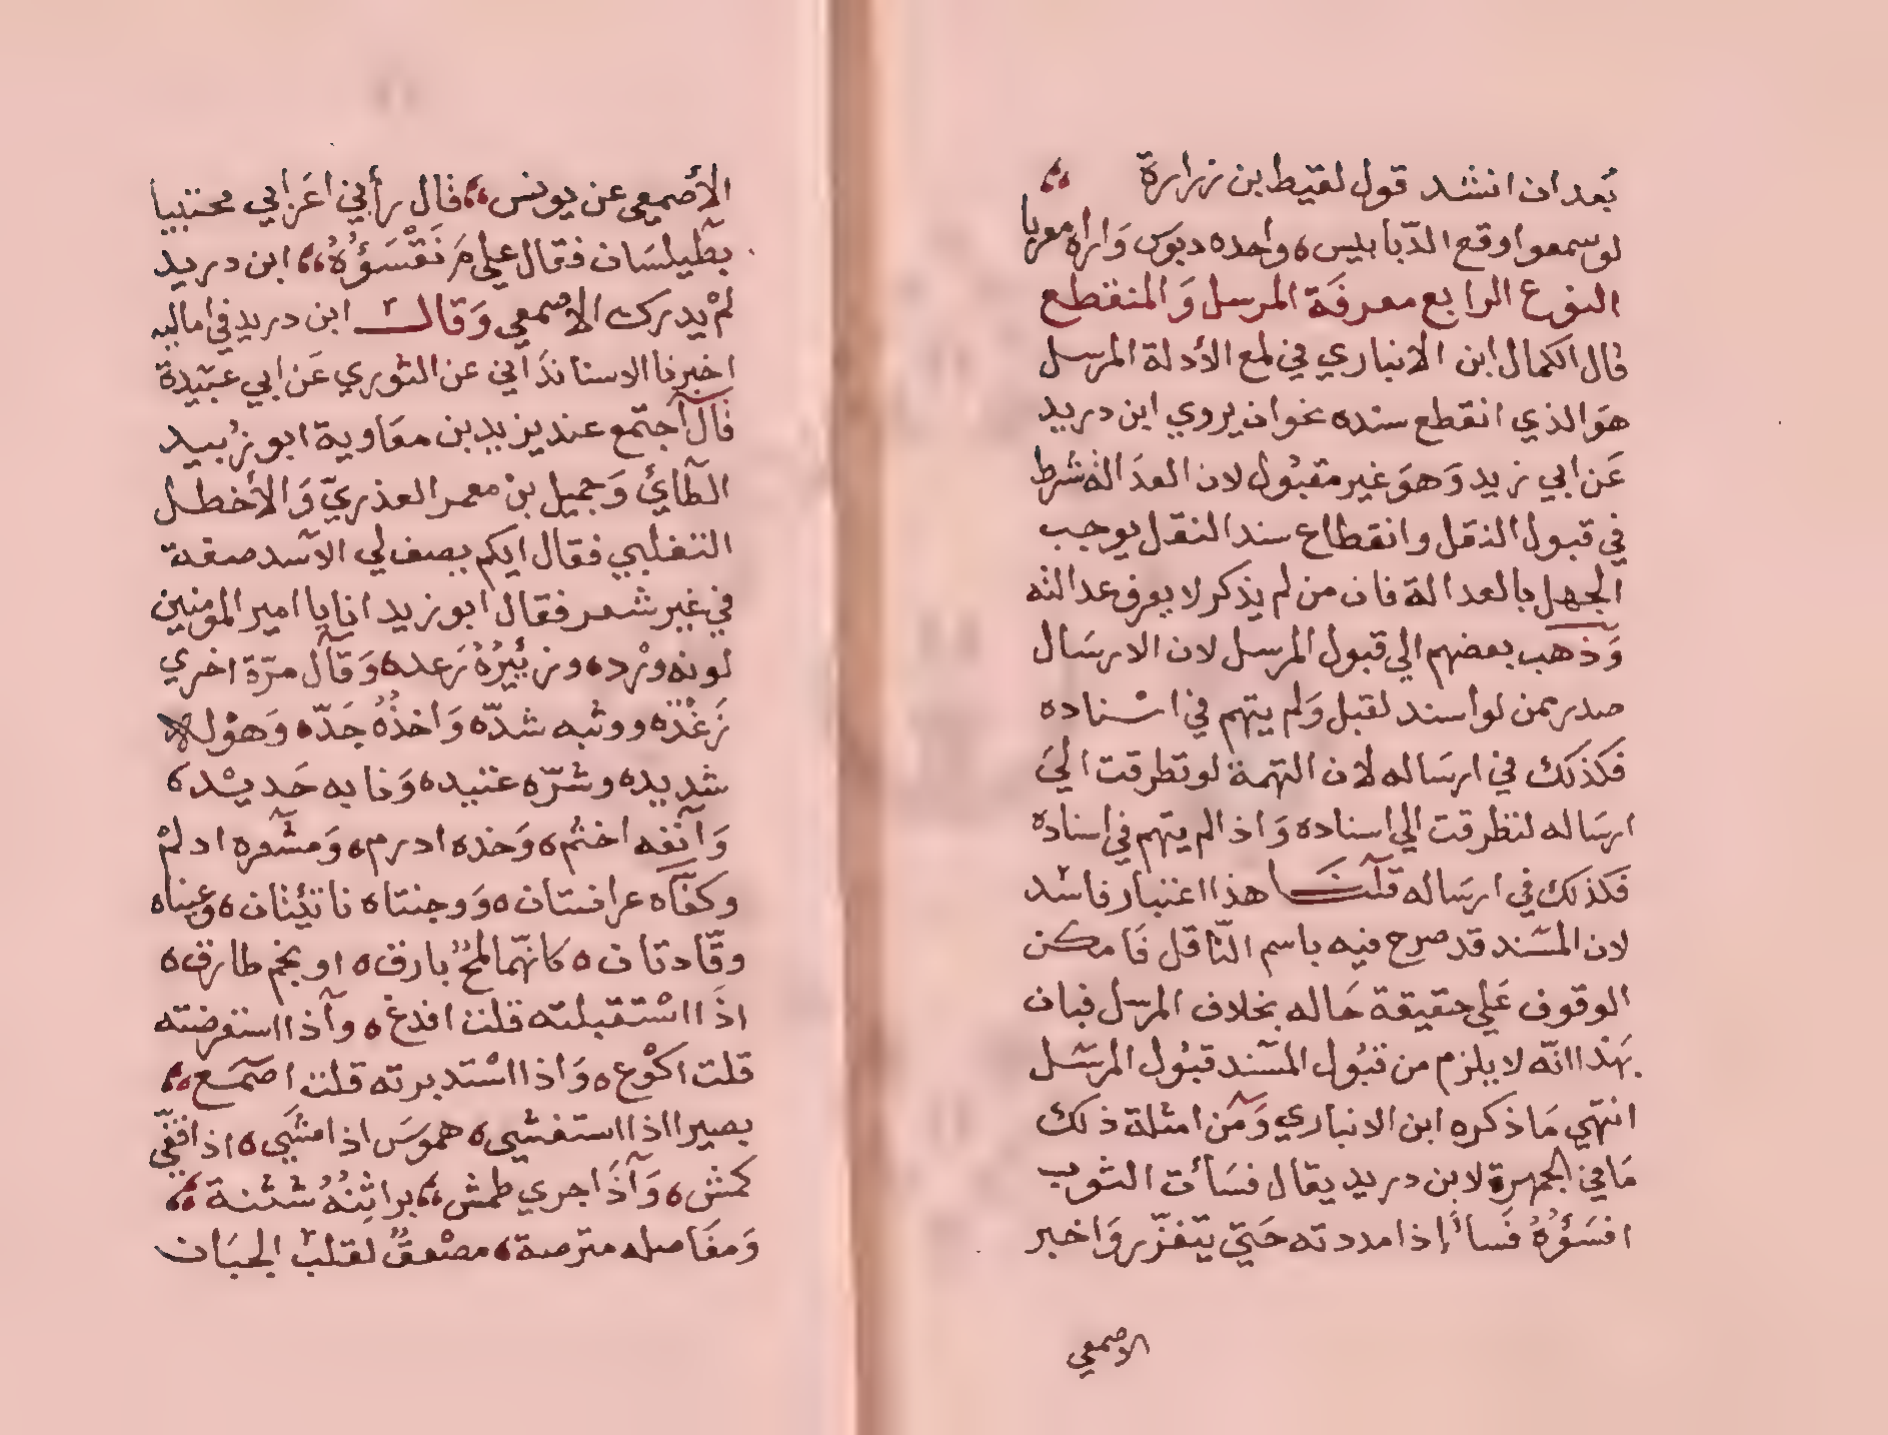 بعد ان انشد قول لقيط بن زرارة
لو سمعوا وقع الدّبابيس واحده دبوس وَاراه معربا
النوع الرابع معرفَة المرسل وَالمنقطع
قال الكمال ابن الانباري في لمع الأدلة المرسل
هوَ الذي انقطع سنده نحو ان يروي ابن دريد
عَن ابي زيد وَهوَ غير مقبُول لان العدَالة شرط
في قبول النقل وانقطاع سند النقل يوجب
الجهل بالعدالة فان من لم يذكر لا يعرف عدالته
وَذهب بعضهم الي قبول المرسل لان الارسَال
صدر ممن لو اسند لقبل وَلم يتهم في اسْناده
فكذَلك في ارسَاله لان التهمة لو تطرقت اليَ
ارسَاله لتطرقت الي اسناده وَاذا لم يتهم في اسناده
فكذلك في ارسَاله قلنَا هذا اعتبار فاسد
لان المسَند قد صرح فيه باسم النّاقل فَامكن
الوقوف عَلي حقيقة حَاله بخلاف المرسَل فبان
بهَذا انّه لا يلزم من قبُول المسَند قبُول المرسَل
انتهي مَا ذكره ابن الانباري وَمَن امثلة ذلك
مَا في الجمهرة لابن دريد يقال فسَأت الثوب
افسَؤُهُ فَسأً إذا مددته حَتيّ يتفزّر وَاخبر
الاصمعي
الأصمعي عن يونس قال رأني اعَرابي محتبيا
بطيلسَان فقال علي مَ تَفْسَؤُهُ ابن دريد
لمْ يدرك الاصمعي وَقال ابن دريد في اماليه
اخبرنا الاسنانذَاني عن التوري عَن ابي عبَيدة
قال آجتمع عند يزيد بن معَاوية ابو زُبيد
الطآئي وَجميل بن معمر العذريّ وَالأخطل
التغلبي فقال ايكم يصف لي الاسَد صفة
في غير شعر فقال ابو زيد انا يا امير المومنين
لونه ورْد وزئيرُهُ رَعد وَقال مرّة اخري
زَغْدٌ ووثبه شدّ وَاخذُهُ جَدّ وَهوْله
شديد وشرّه عتيد وَنابه حَديْد
وَآنفه اخثم وَخده ادرم وَمشَفره ادلمْ
وكفّاه عراضتان وَوجنتاه ناتئتان وَعيناه
وقّادتان كانهّما لمحٌ بارق او نجم طارق
اذَا اسْتقبلته قلت افدع وآذا استعرضته
قلت اكوْع وَاذا اسْتدبرته قلت اصمَع
بصير اذا استغشي هموسَ اذا مشَي اذا قفّي
كمش وَآذَا جري طمش براثِنُهُ شثنة
وَمفَاصله مترصة مصْعقٌ لقلب الجبَان